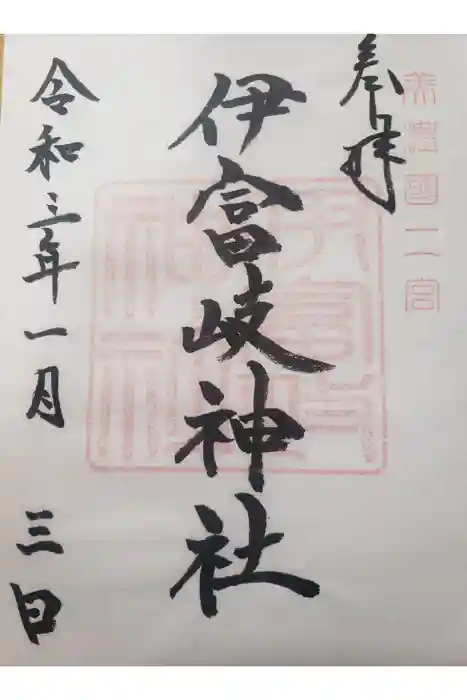 奉拝
美濃國二宮
伊富岐神社
令和三年一月三日